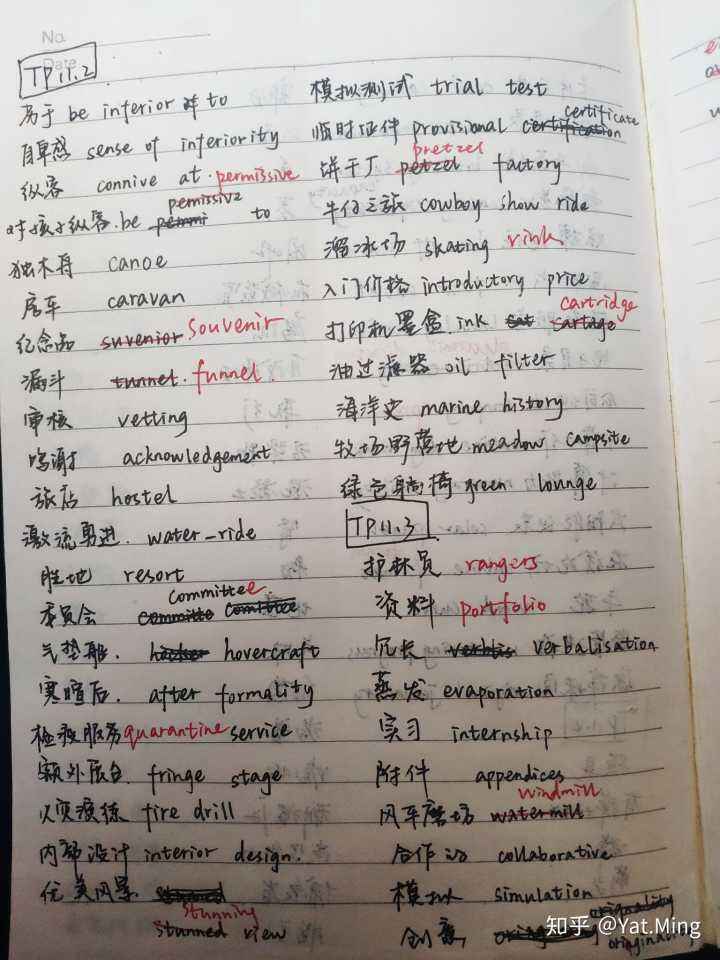 Na
Date
TP11.2
属于 be interior to
自卑感 sense of interiority
纵容 connive at. permissive
对孩子纵容. be pemissive to
独木舟 canoe
房车 caravan
纪念品 suvenior souvenir
漏斗 tunnel. funnel
审核 vetting
鸣谢 acknowledgement
旅店 hostel
激流勇进. water-ride
胜地 resort
委员会 committee
气垫船. hovercraft
寒暄后. after formality
检疫服务 quarantine service
额外展台. fringe stage
火灾演练 fire drill
内部设计 interior design.
优美风景
stunning
stunned view
模拟测试 trial test
临时证件 provisional certification certificate
饼干厂 petzel pretzel factory
牛仔之旅 cowboy show ride
溜冰场 skating rink
入门价格 introductory price
打印机墨盒 ink sartage cartridge
油过滤器 oil filter
海洋史 marine history
牧场野营地 meadow campsite
绿色躺椅 green lounge
TP11.3
护林员 rangers
资料 portfolio
冗长 verbalisation
蒸发 evaporation
实习 internship
附件 appendices
风车磨坊 watermill windmill
合作的 collaborative
模拟 simulation
创意 originality
知乎 @Yat.Ming